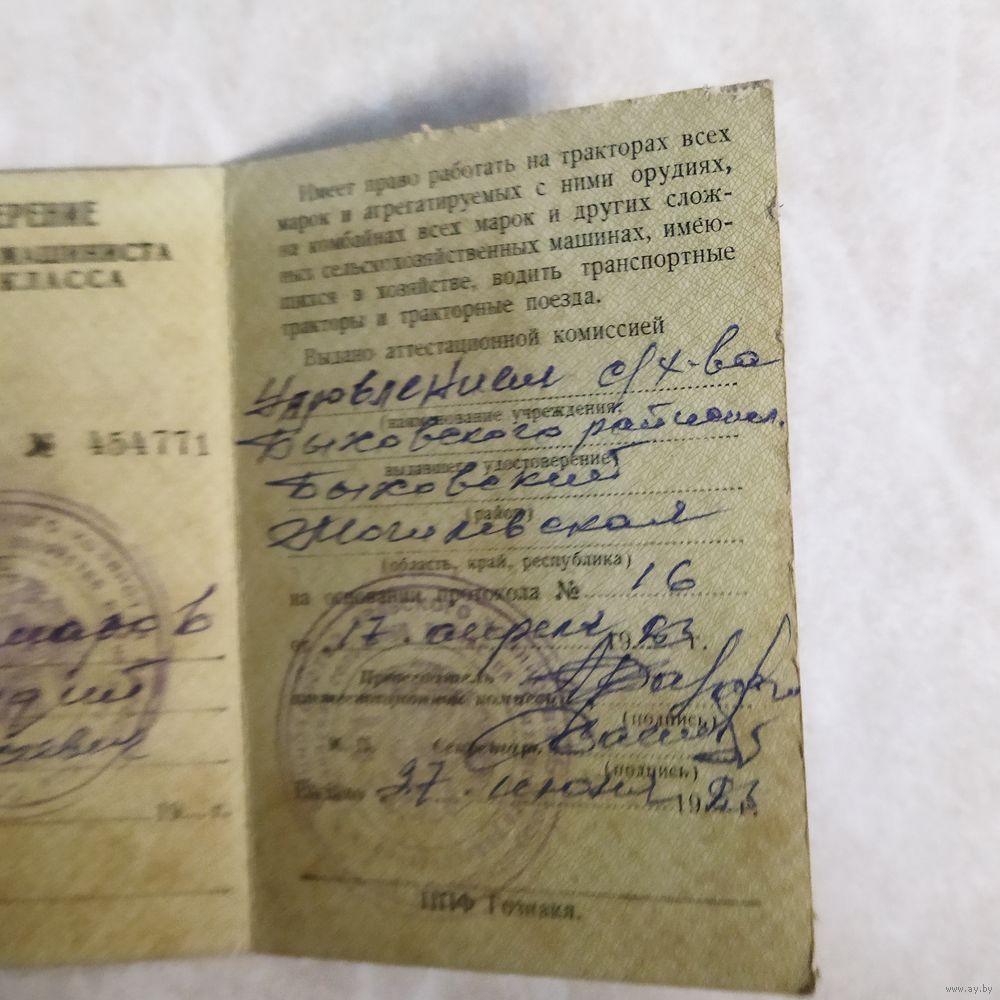 ЕРЕНИЕ
МАШИНИСТА
КЛАССА
№ 454771
19 г.
Имеет право работать на тракторах всех
марок и агрегатируемых с ними орудиях,
на комбайнах всех марок и других слож-
ных сельскохозяйственных машинах, имею-
щихся в хозяйстве, водить транспортные
тракторы и тракторные поезда.
Выдано аттестационной комиссией
Управлением с/х-ва
(наименование учреждения,
Быховского
выдавшего удостоверение)
Быховский
(район)
Могилевская
(область, край, республика)
на основании протокола № 16
от 17 апреля 1983 г.
Председатель
аттестационной комиссии
(подпись)
М. П. Секретарь
(подпись)
Выдано 27 июня 1983 г.
ППФ Гознака.
www.ay.by